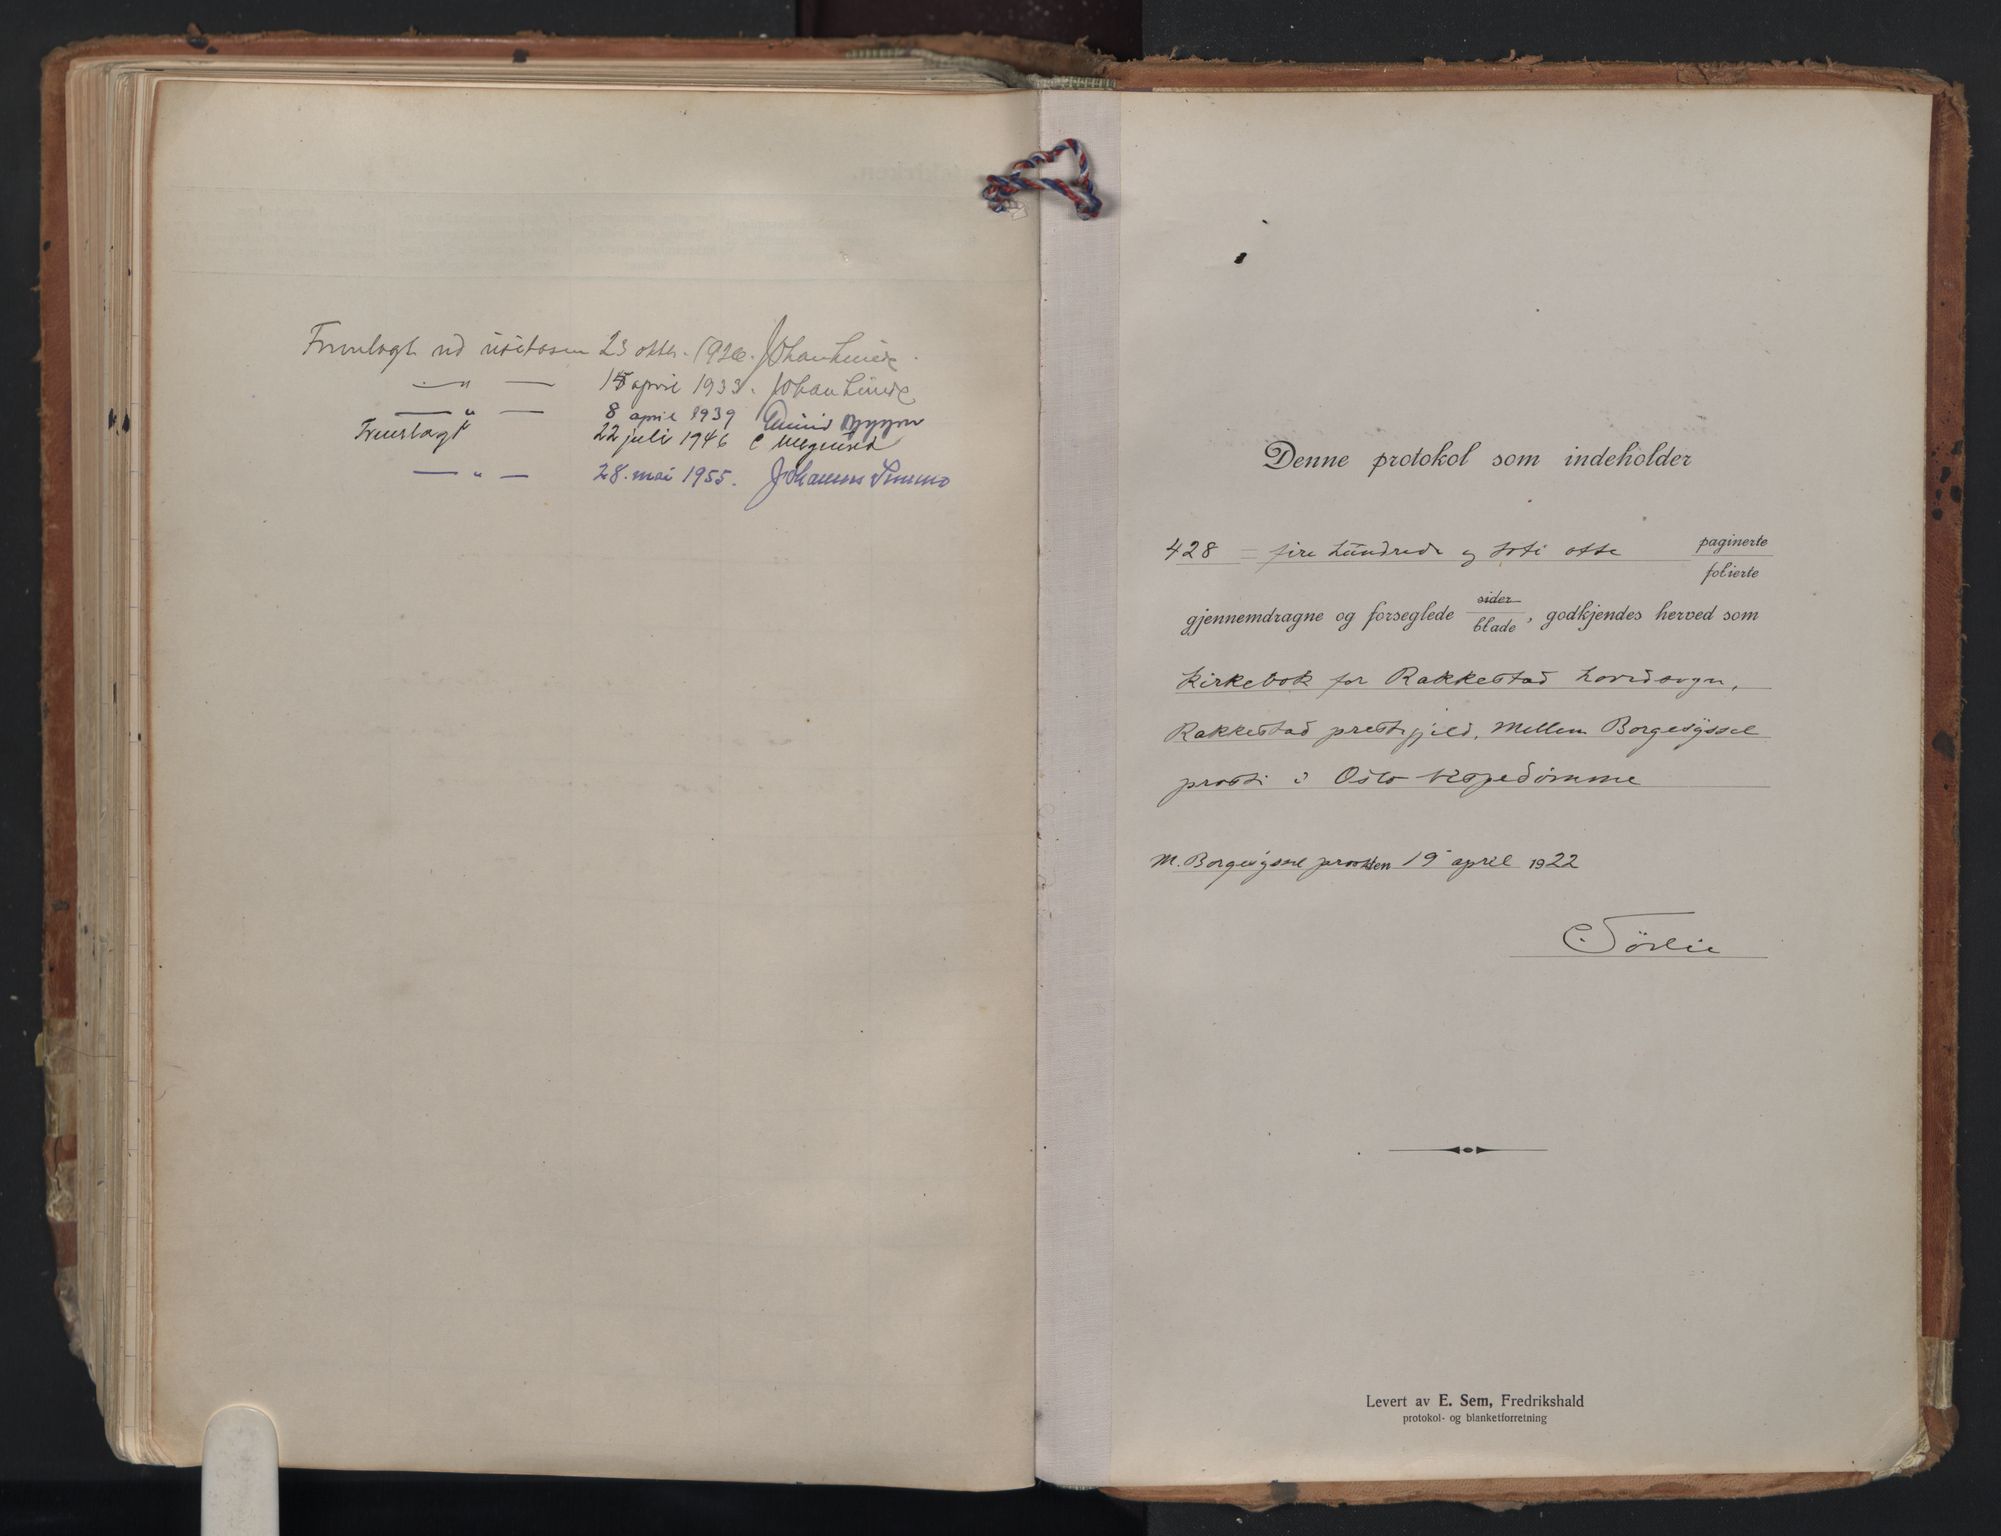 Fremlagt ved visitasen 23 oktbr. 1926. Johan Lunde.
— " — 15 april 1933. Johan Lunde
— " — 8 april 1939
Fremlagt 22 juli 1946
— " — 28. mai 1955. Johannes Smemo
Denne protokol som indeholder
428 = fire hundrede og toti otte paginerte
folierte
gjennemdragne og forseglede sider blade, godkjendes herved som
kirkebok for Rakkestad hovedsogn,
Rakkestad prestegjeld, Mellem Borgesyssel
prosti i Oslo bispedømme
M. Borgesyssel prosti den 19 april 1922
C. Tørlie
Levert av E. Sem, Fredrikshald
protokol- og blanketforretning